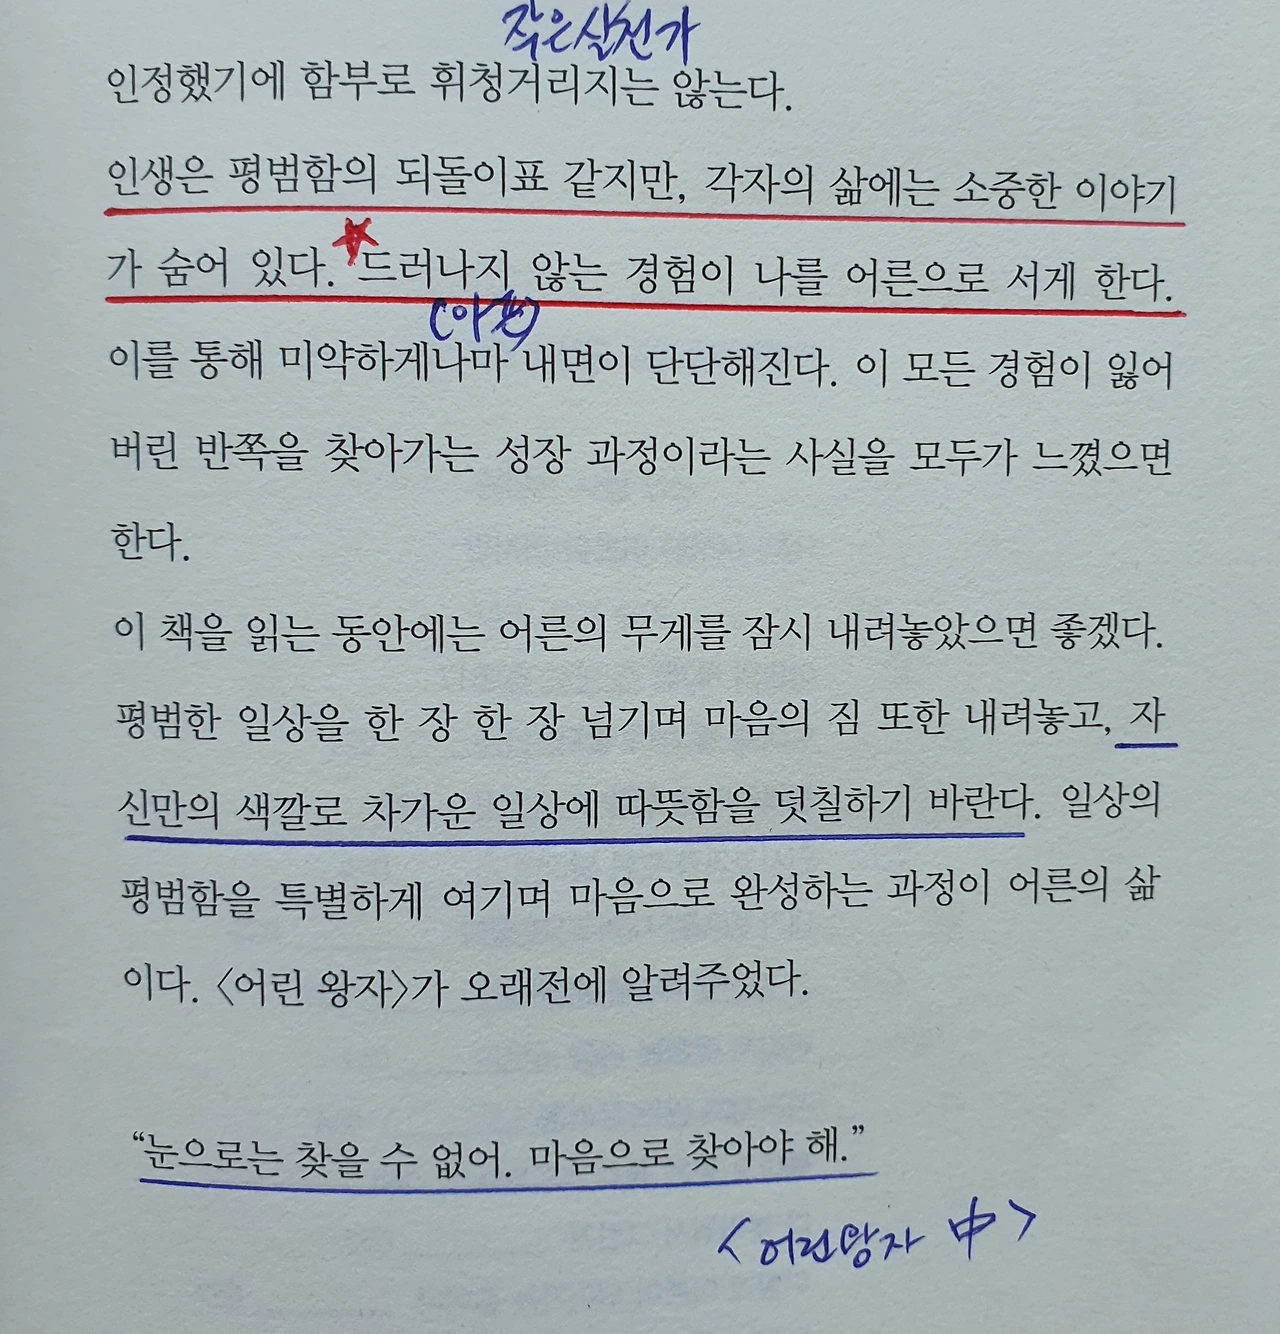 작은실천가
인정했기에 함부로 휘청거리지는 않는다.
인생은 평범함의 되돌이표 같지만, 각자의 삶에는 소중한 이야기
가 숨어 있다. 드러나지 않는 경험이 나를 어른으로 서게 한다.
이를 통해 미약하게나마 내면이 단단해진다. 이 모든 경험이 잃어
버린 반쪽을 찾아가는 성장 과정이라는 사실을 모두가 느꼈으면
한다.
이 책을 읽는 동안에는 어른의 무게를 잠시 내려놓았으면 좋겠다.
평범한 일상을 한 장 한 장 넘기며 마음의 짐 또한 내려놓고, 자
신만의 색깔로 차가운 일상에 따뜻함을 덧칠하기 바란다. 일상의
평범함을 특별하게 여기며 마음으로 완성하는 과정이 어른의 삶
이다. 〈어린 왕자〉가 오래전에 알려주었다.
“눈으로는 찾을 수 없어. 마음으로 찾아야 해.”
<어린왕자 中>